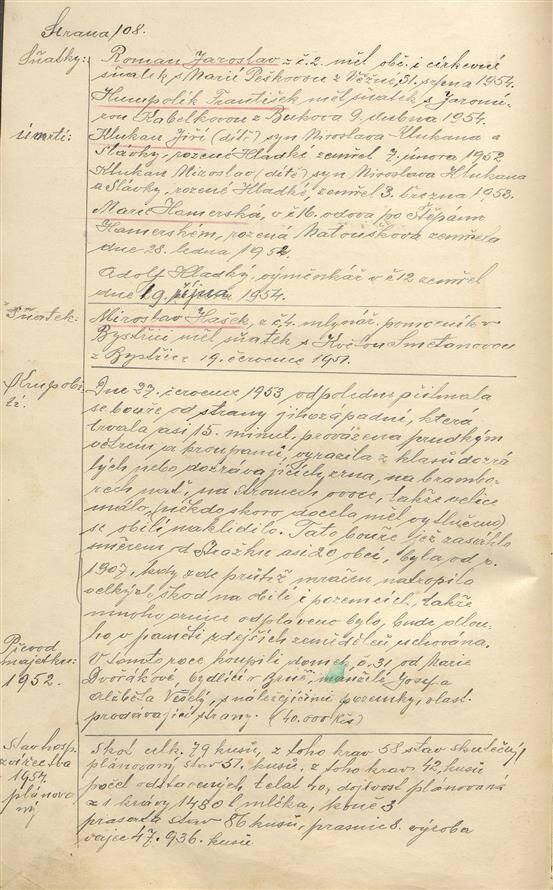 Strana 108.
Sňatky:
Roman Jaroslav z č. 2. měl obč. i církevně
sňatek s Marií Peškovou z Věžné, 31. srpna 1954.
Humpolík František měl sňatek s Jaromí-
rou Kabelkovou z Bukova 9. dubna 1954.
úmrtí:
Klukan Jiří (dítě) syn Miroslava Klukana a
Slávky, rozené Hladké zemřel 7. února 1952.
Klukan Miroslav (dítě) syn Miroslava Klukana
a Slávky, rozené Hladké, zemřel 3. března 1953.
Marie Hamerská, v č 16. vdova po Štěpánu
Hamerském, rozená Matoušková zemřela
dne 28. ledna 1952.
Adolf Hladký, výměnkář v č 12 zemřel
dne 19. října 1954.
Sňatek.
Miroslav Hašek, z č. 4. mlynář. pomocník v
Bystřici měl sňatek s Květou Smetanovou
z Bystřice 19. července 1951.
Krupobi-
tí.
Dne 27. července 1953 odpoledne přihnala
se bouře od strany jihozápadní, která
trvala asi 15. minut, provázena prudkým
větrem a kroupami, vymlátila z klasů dozrá
lých nebo dozrávajících zrna, na brambo-
rech nať, na stromech ovoce, takže velice
málo, (někdo skoro docela měl vytlučeno)
se obilí naklidilo. Tato bouře, jež zasáhla
směrem od asi 20 obcí, byla od r.
1907, kdy zde průtrž mračen natropila
velkých škod na obilí i pozemcích, takže
mnoho ornice odplaveno bylo, bude dlou-
ho v paměti zdejších zemědělců uchována.
Převod
majetku:
1952.
V tomto roce koupili domek, č. 31 od Marie
Dvořákové, bydlící v Brně, manželé Josef a
Alžběta Veselý, s náležejícími pozemky, vlast.
prodávající strany. (40.000 Kčs)
Stav hosp.
zvířectva
1954.
plánova
ný
Skot celk. 79 kusů, z toho krav 58 stav skutečný,
plánovaný stav 51. kusů, z toho krav 42, kusů
počet odstavených telat 40, dojivost plánovaná
z 1 krávy 1480 l mléka, koně 3
prasata stav 86 kusů, prasnic 8. výroba
vajec 47.936. kusů